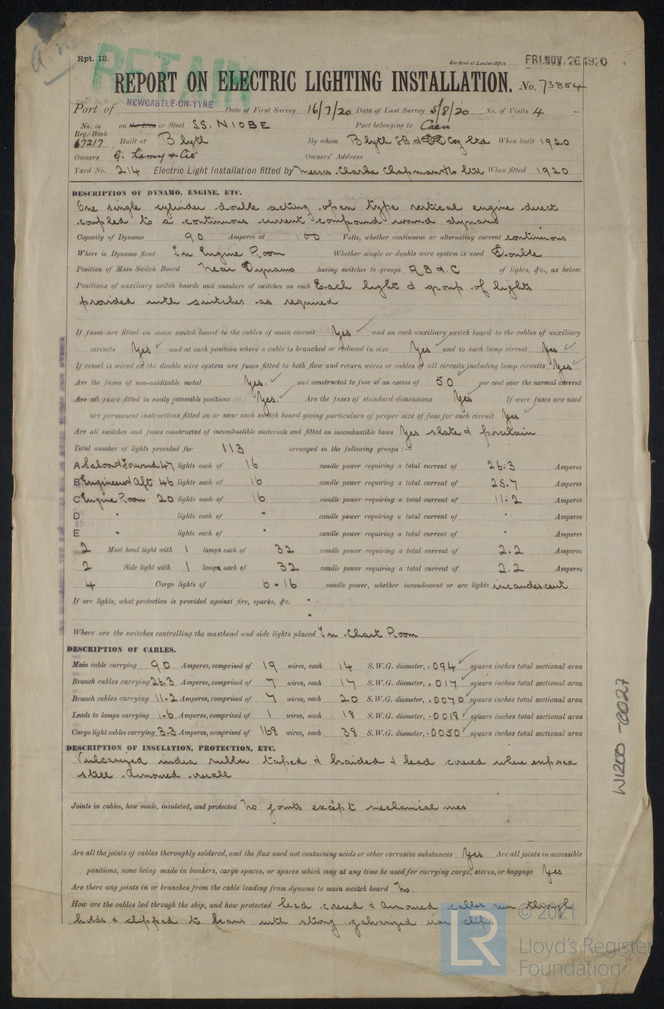 Rpt. 13.
RETAIN
Received at London Office FRI. NOV. 26 1920
REPORT ON ELECTRIC LIGHTING INSTALLATION. No. 73854
Port of NEWCASTLE-ON-TYNE Date of First Survey 16/7/20 Date of Last Survey 5/8/20 No. of Visits 4
No. in Reg. Book on the Iron or Steel S.S. NIOBE Port belonging to Caen
67217 Built at Blyth By whom Blyth SB & DD Coy Ltd When built 1920
Owners G. Lamy & Cie Owners' Address
Yard No. 214 Electric Light Installation fitted by Messrs Clarke Chapman & Co Ltd When fitted 1920
DESCRIPTION OF DYNAMO, ENGINE, ETC.
One single cylinder double acting open type vertical engine direct
coupled to a continuous current compound wound dynamo
Capacity of Dynamo 90 Amperes at 100 Volts, whether continuous or alternating current continuous
Where is Dynamo fixed In Engine Room Whether single or double wire system is used Double
Position of Main Switch Board near Dynamo having switches to groups A B & C of lights, &c., as below
Positions of auxiliary switch boards and numbers of switches on each Each light & group of lights
provided with switches as required
If fuses are fitted on main switch board to the cables of main circuit Yes and on each auxiliary switch board to the cables of auxiliary
circuits Yes and at each position where a cable is branched or reduced in size Yes and to each lamp circuit Yes
If vessel is wired on the double wire system are fuses fitted to both flow and return wires or cables of all circuits including lamp circuits Yes
Are the fuses of non-oxidizable metal Yes and constructed to fuse at an excess of 50 per cent over the normal current
Are all fuses fitted in easily accessible positions Yes Are the fuses of standard dimensions Yes If wire fuses are used
are permanent instructions fitted on or near each switch board giving particulars of proper size of fuse for each circuit Yes
Are all switches and fuses constructed of incombustible materials and fitted on incombustible bases Yes slate & porcelain
Total number of lights provided for 113 arranged in the following groups :—
A Saloon & Forward 47 lights each of 16 candle power requiring a total current of 26.3 Amperes
B Engineers & Aft 46 lights each of 16 candle power requiring a total current of 25.7 Amperes
C Engine Room 20 lights each of 16 candle power requiring a total current of 11.2 Amperes
D " lights each of " candle power requiring a total current of " Amperes
E " lights each of " candle power requiring a total current of " Amperes
2 Mast head light with 1 lamps each of 32 candle power requiring a total current of 2.2 Amperes
2 Side light with 1 lamps each of 32 candle power requiring a total current of 2.2 Amperes
4 Cargo lights of 6 - 16 candle power, whether incandescent or arc lights incandescent
If arc lights, what protection is provided against fire, sparks, &c. "
Where are the switches controlling the masthead and side lights placed In Chart Room
DESCRIPTION OF CABLES.
Main cable carrying 90 Amperes, comprised of 19 wires, each 14 S.W.G. diameter, .094 square inches total sectional area
Branch cables carrying 26.3 Amperes, comprised of 7 wires, each 17 S.W.G. diameter, .017 square inches total sectional area
Branch cables carrying 11.2 Amperes, comprised of 7 wires, each 20 S.W.G. diameter, .0070 square inches total sectional area
Leads to lamps carrying 1.6 Amperes, comprised of 1 wires, each 18 S.W.G. diameter, .0018 square inches total sectional area
Cargo light cables carrying 3.3 Amperes, comprised of 168 wires, each 38 S.W.G. diameter, .0050 square inches total sectional area
DESCRIPTION OF INSULATION, PROTECTION, ETC.
Vulcanized india rubber taped & braided & lead covered where exposed
steel armoured overall
Joints in cables, how made, insulated, and protected No joints except mechanical ones
Are all the joints of cables thoroughly soldered, and the flux used not containing acids or other corrosive substances Yes Are all joints in accessible
positions, none being made in bunkers, cargo spaces, or spaces which may at any time be used for carrying cargo, stores, or baggage Yes
Are there any joints in or branches from the cable leading from dynamo to main switch board No
How are the cables led through the ship, and how protected lead covered & armoured cables run through
holds & clipped to beams with strong galvanized iron clips
W1200-0027
LR
© 2021
Lloyd's Register
Foundation